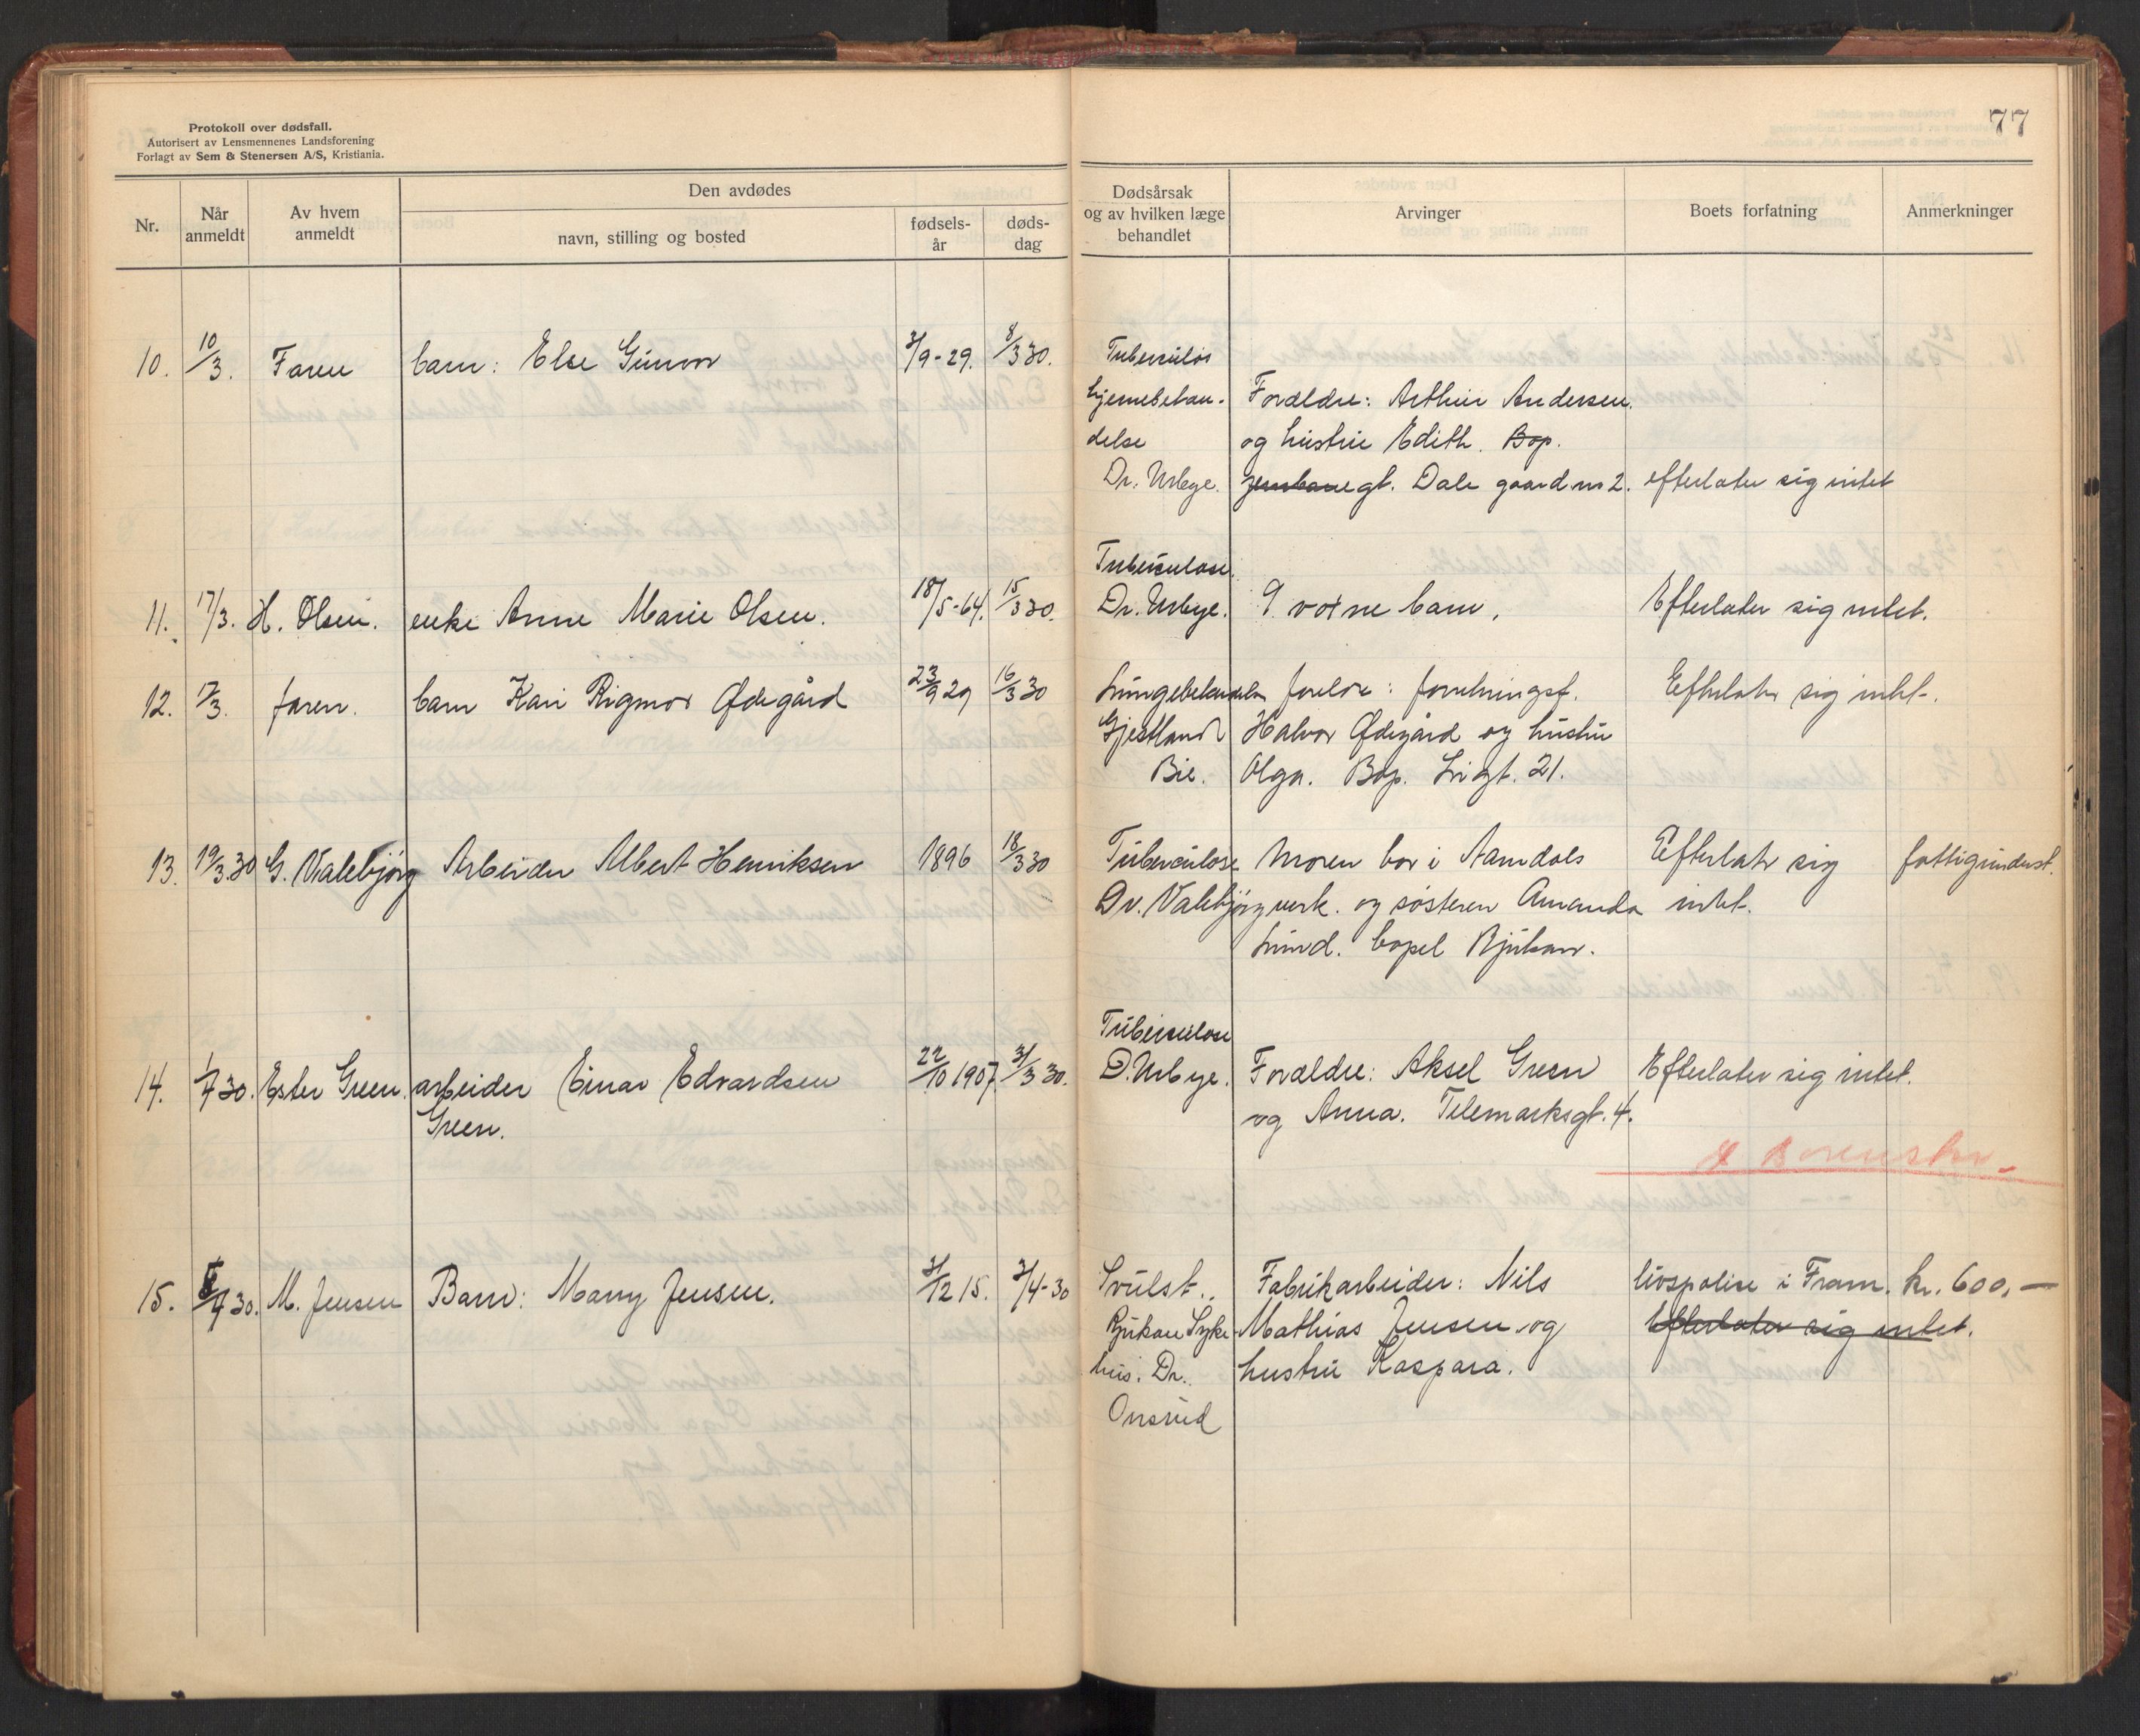 Protokoll over dødsfall.
Autorisert av Lensmennenes Landsforening
Forlagt av Sem & Stenersen A/S, Kristiania.
77
Nr.
Når anmeldt
Av hvem anmeldt
Den avdødes
navn, stilling og bosted
fødsels-
år
døds-
dag
Dødsårsak
og av hvilken læge
behandlet
Arvinger
Boets forfatning
Anmerkninger
10. 10/3. Faren barn: Else Gunvor 3/9-29. 8/3 30. Tuberculøs
hjernebetæn- Forældre: Arthur Andersen
delse og hustru Edith. Bop.
Dr. Usbye. gt. Dale gaard nr 2. efterlater sig intet
Tuberculose.
11. 17/3. H. Olsen. enke Anne Marie Olsen. 18/5-64. 15/3 30. Dr. Usbye. 9 voxne barn, Efterlater sig intet.
12. 17/3. faren. barn Kari Rigmor Ødegård 23/9 29 16/3 30 Lungebetændelse forelre: forretningsf. Efterlater sig intet.
Gjestland Halvor Ødegård og hustru
Bie. Olga. Bop. Ligt. 21.
13. 19/3.30 G. Valebjørg Arbeider Albert Henriksen 1896 18/3 30 Tuberculose Moren bor i Aamdals Efterlater sig fattigunderst.
Dr. Valebjørg verk. og søsteren Amanda intet.
Lund. bopel Rjukan.
Tuberculose
14. 1/4 30. Ester Green. arbeider Einar Edvardsen 22/10 1907. 31/3 30. D. Usbye. Forældre: Aksel Green Efterlater sig intet.
Green. og Anna. Telemarksgt. 4.
15. 5/4 30. M. Jensen Barn: Marry Jensen. 31/12 15. 3/4-30 Svulst. Fabrikarbeider: Nils livspolise i Fram. kr. 600,—
Rjukan Syke- Mathias Jensen og Efterlater sig intet.
hus. Dr. hustru Kaspara.
Onsrud